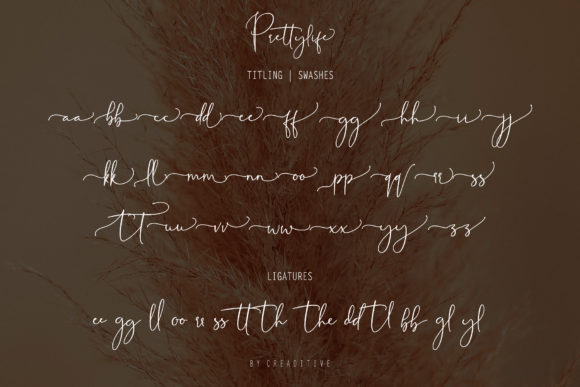 Prettylife
TITLING | SWASHES
aa bb cc dd ee ff gg hh ii jj
kk ll mm nn oo pp qq rr ss
tt uu vv ww xx yy zz
LIGATURES
ee gg ll oo rr ss tt th the dd tl bb gl yl
BY CREADITIVE